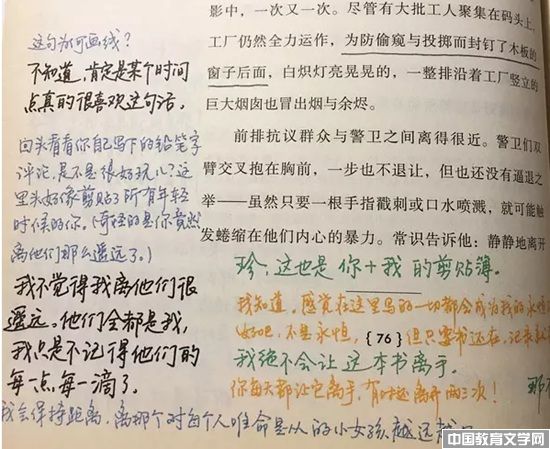 这句为何画线？
不知道，肯定是某个时间
点真的很喜欢这句话。
回头看看你自己写下的铅笔字
评论，是不是很好玩儿？这
里头好像剪贴了所有年轻
时候的你。（奇怪的是你竟然
离他们那么遥远了。）
我不觉得我离他们很
遥远。他们全都是我，
我只是不记得他们的
每一点每一滴了。
影中，一次又一次。尽管有大批工人聚集在码头上，
工厂仍然全力运作，为防偷窥与投掷而封钉了木板的
窗子后面，白炽灯亮晃晃的，一整排沿着工厂竖立的
巨大烟囱也冒出烟与余烬。
前排抗议群众与警卫之间离得很近。警卫们双
臂交叉抱在胸前，一步也不退让，但也还没有逼退之
举——虽然只要一根手指戳刺或口水喷溅，就可能触
发蜷缩在他们内心的暴力。常识告诉他：静静地离开
珍，这也是你+我的剪贴簿。
我知道，感觉在这里写的一切都会成为我的永恒
好吧，不是永恒，但只要书还在，记录
{76}
我绝不会让这本书离手。
你每天都让它离手，有时还离开两三次！
那
我会保持距离，离那个对每个人唯命是从的小女孩越远越
中国教育文学网